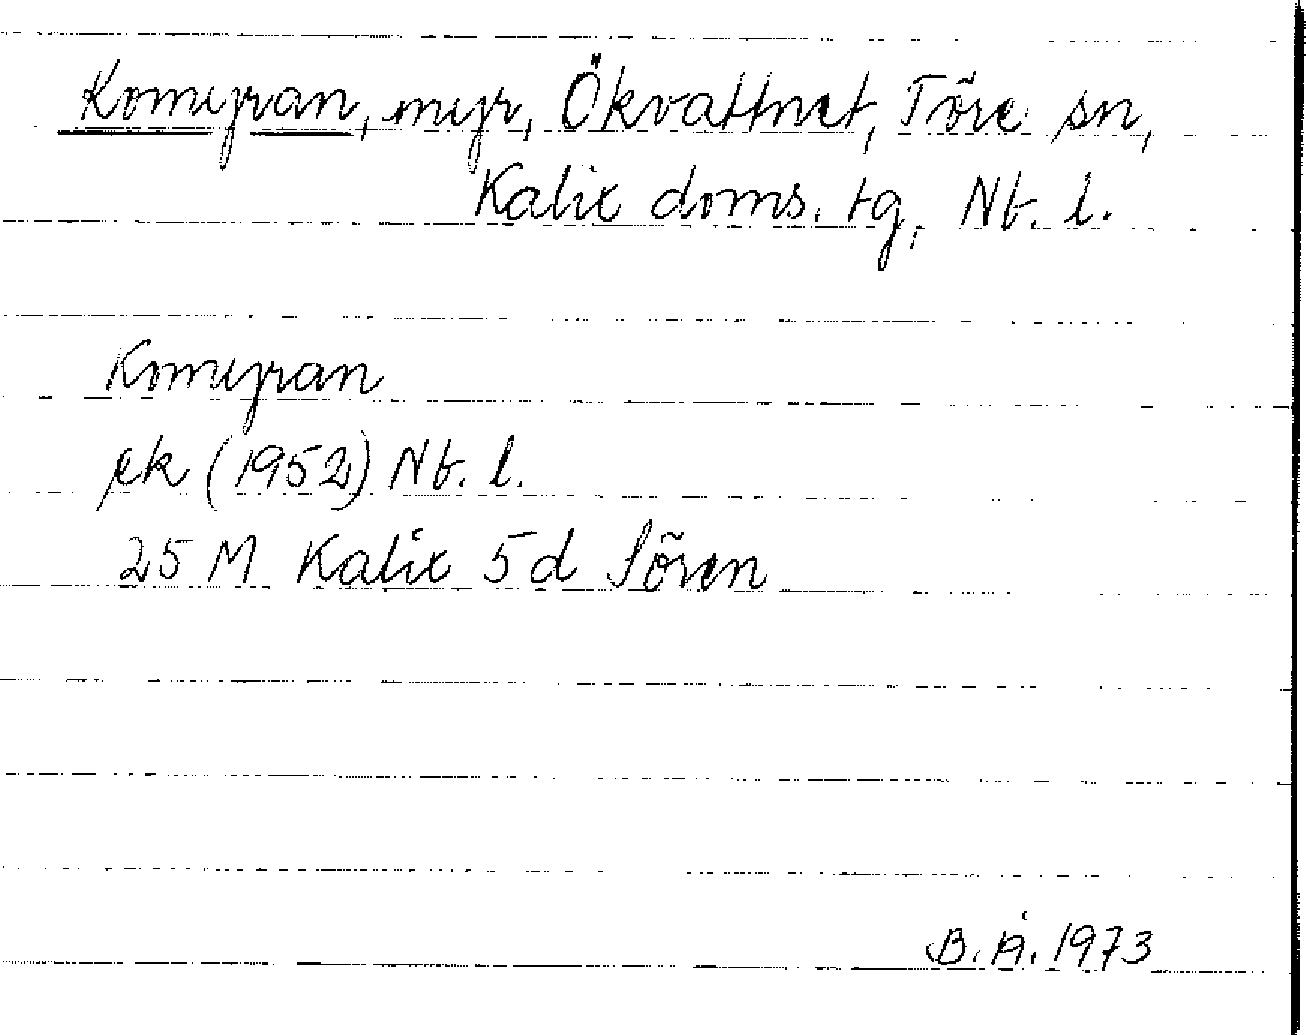 Komyran, myr, Ökvattnet, Töre sn,
Kalix doms. tg, Nb. l.
Komyran
ek (1952) Nb. l.
25 M Kalix 5d Sören
B. Å. 1973